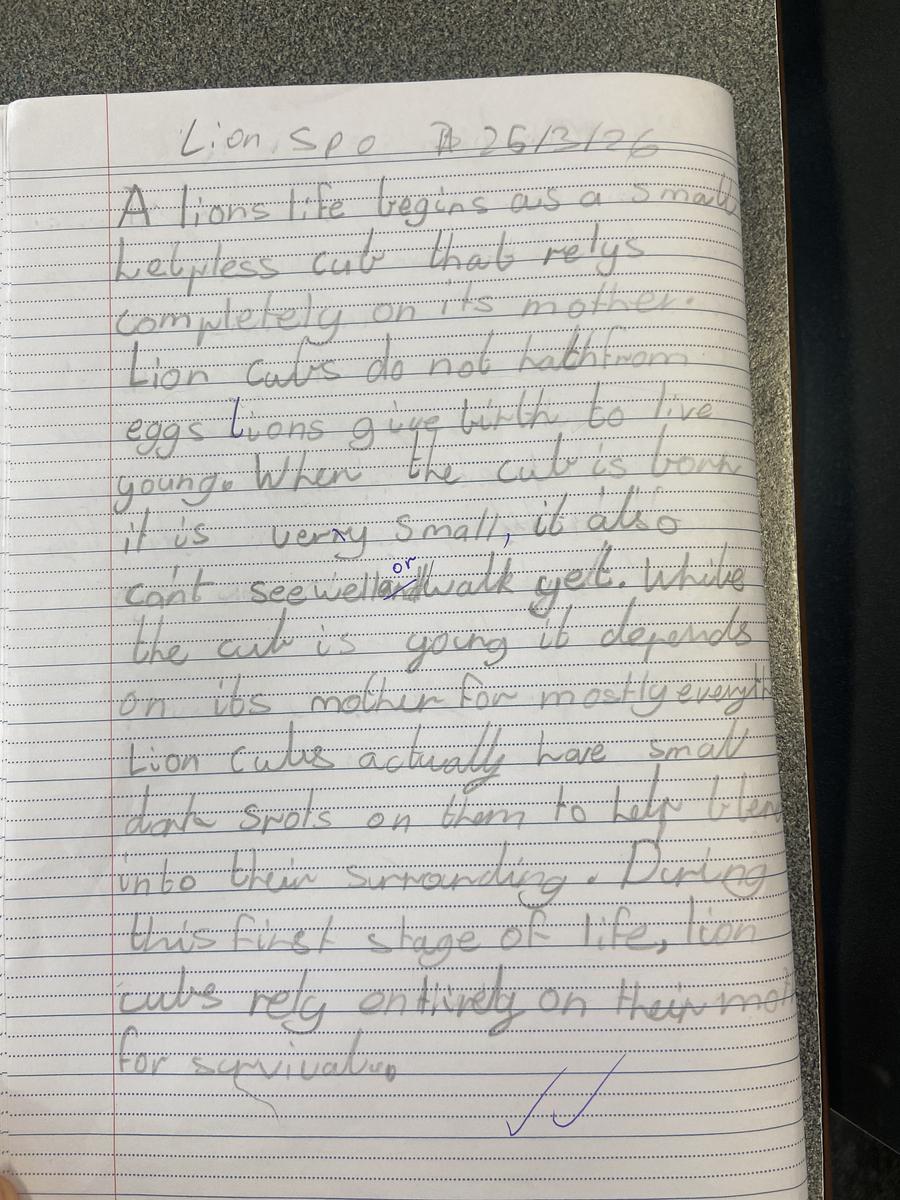 Lion spo 26/3/26
A lions life begins as a small
helpless cub that relys
completely on its mother.
Lion cubs do not hathfrom
eggs Lions give birth to live
young. When the cub is born
it is very small, it also
or
can't see well walk yet. While
the cub is yoing it depends
on its mother for mostly everyth
Lion Cubs actually have small
dark spots on them to help blen
unto their surrounding. During
this first stage of life, lion
cubs rely entirely on their mot
for survival.